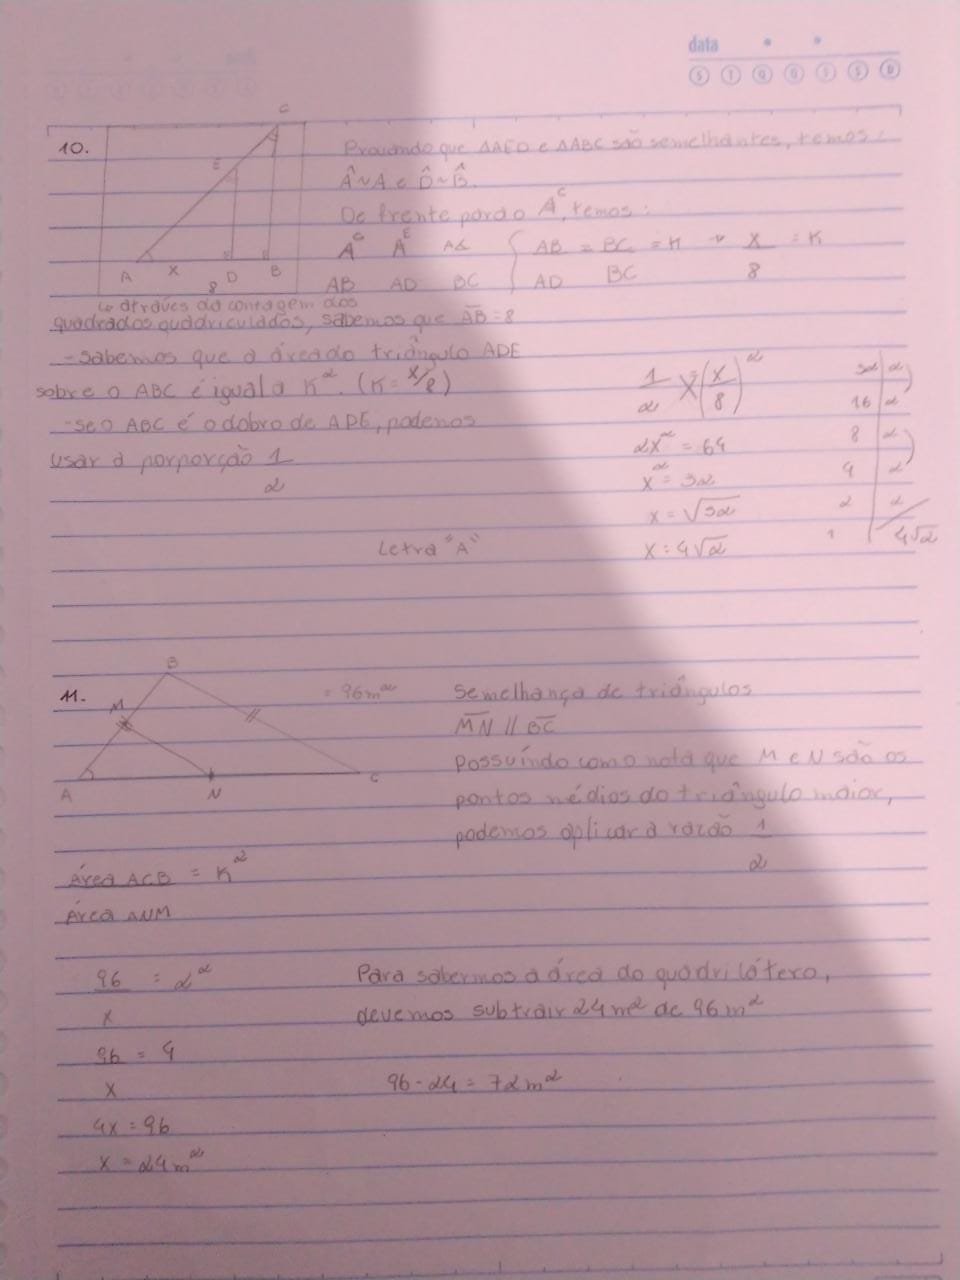 data
S T Q Q S S D
10.
C
E
A x D B
8
Provando que ΔAED e ΔABC são semelhantes, temos:
Â~A e D̂~B̂.
De frente para o A^C, temos:
A^C A^E AC { AB = BC = K → x = K
AB AD BC AD BC 8
↳ através da contagem dos
quadrados quadriculados, sabemos que AB=8
- Sabemos que a área do triângulo ADE
sobre o ABC é igual a K². (K = x/8)
- Se o ABC é o dobro de ADE, podemos
usar a porporção 1
2
1/2 (x/8)²
2x² = 64
x² = 32
x = √32
x = 4√2
32 2
16 2
8 2
4 2
2 2
1 4√2
Letra "A"
11.
B
M
A N C
= 96m²
Semelhança de triângulos
MN // BC
Possuíndo como nota que M e N são os
pontos médios do triângulo maior,
podemos aplicar a razão 1
2
Área ACB = K²
Área ANM
96 = 2²
x
96 = 4
x
4x = 96
x = 24m²
Para sabermos a área do quadrilátero,
devemos subtrair 24m² de 96m²
96 - 24 = 72m²